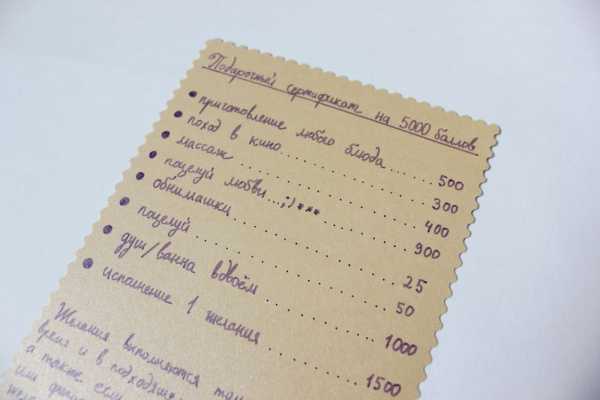 Подарочный сертификат на 5000 баллов
• приготовление любого блюда ...... 500
• поход в кино ............ 300
• массаж ............ 400
• поцелуй любви...;)*** ............ 900
• обнимашки ............ 25
• поцелуй ............ 50
• душ/ванна вдвоём ............ 1000
• исполнение 1 желания ............ 1500
Желания выполняются
время и в
а также если
или